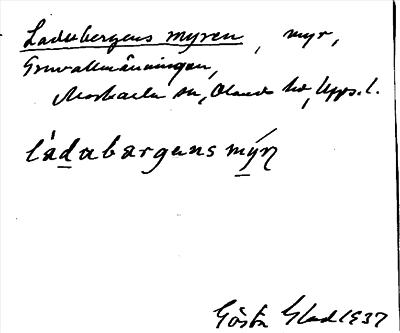 Ladubergens myren, myr,
Gruvallmänningen,
Morkarla sn, Olands hd, Upps. l.
ládubærgens mýrn
Gösta Glad 1937